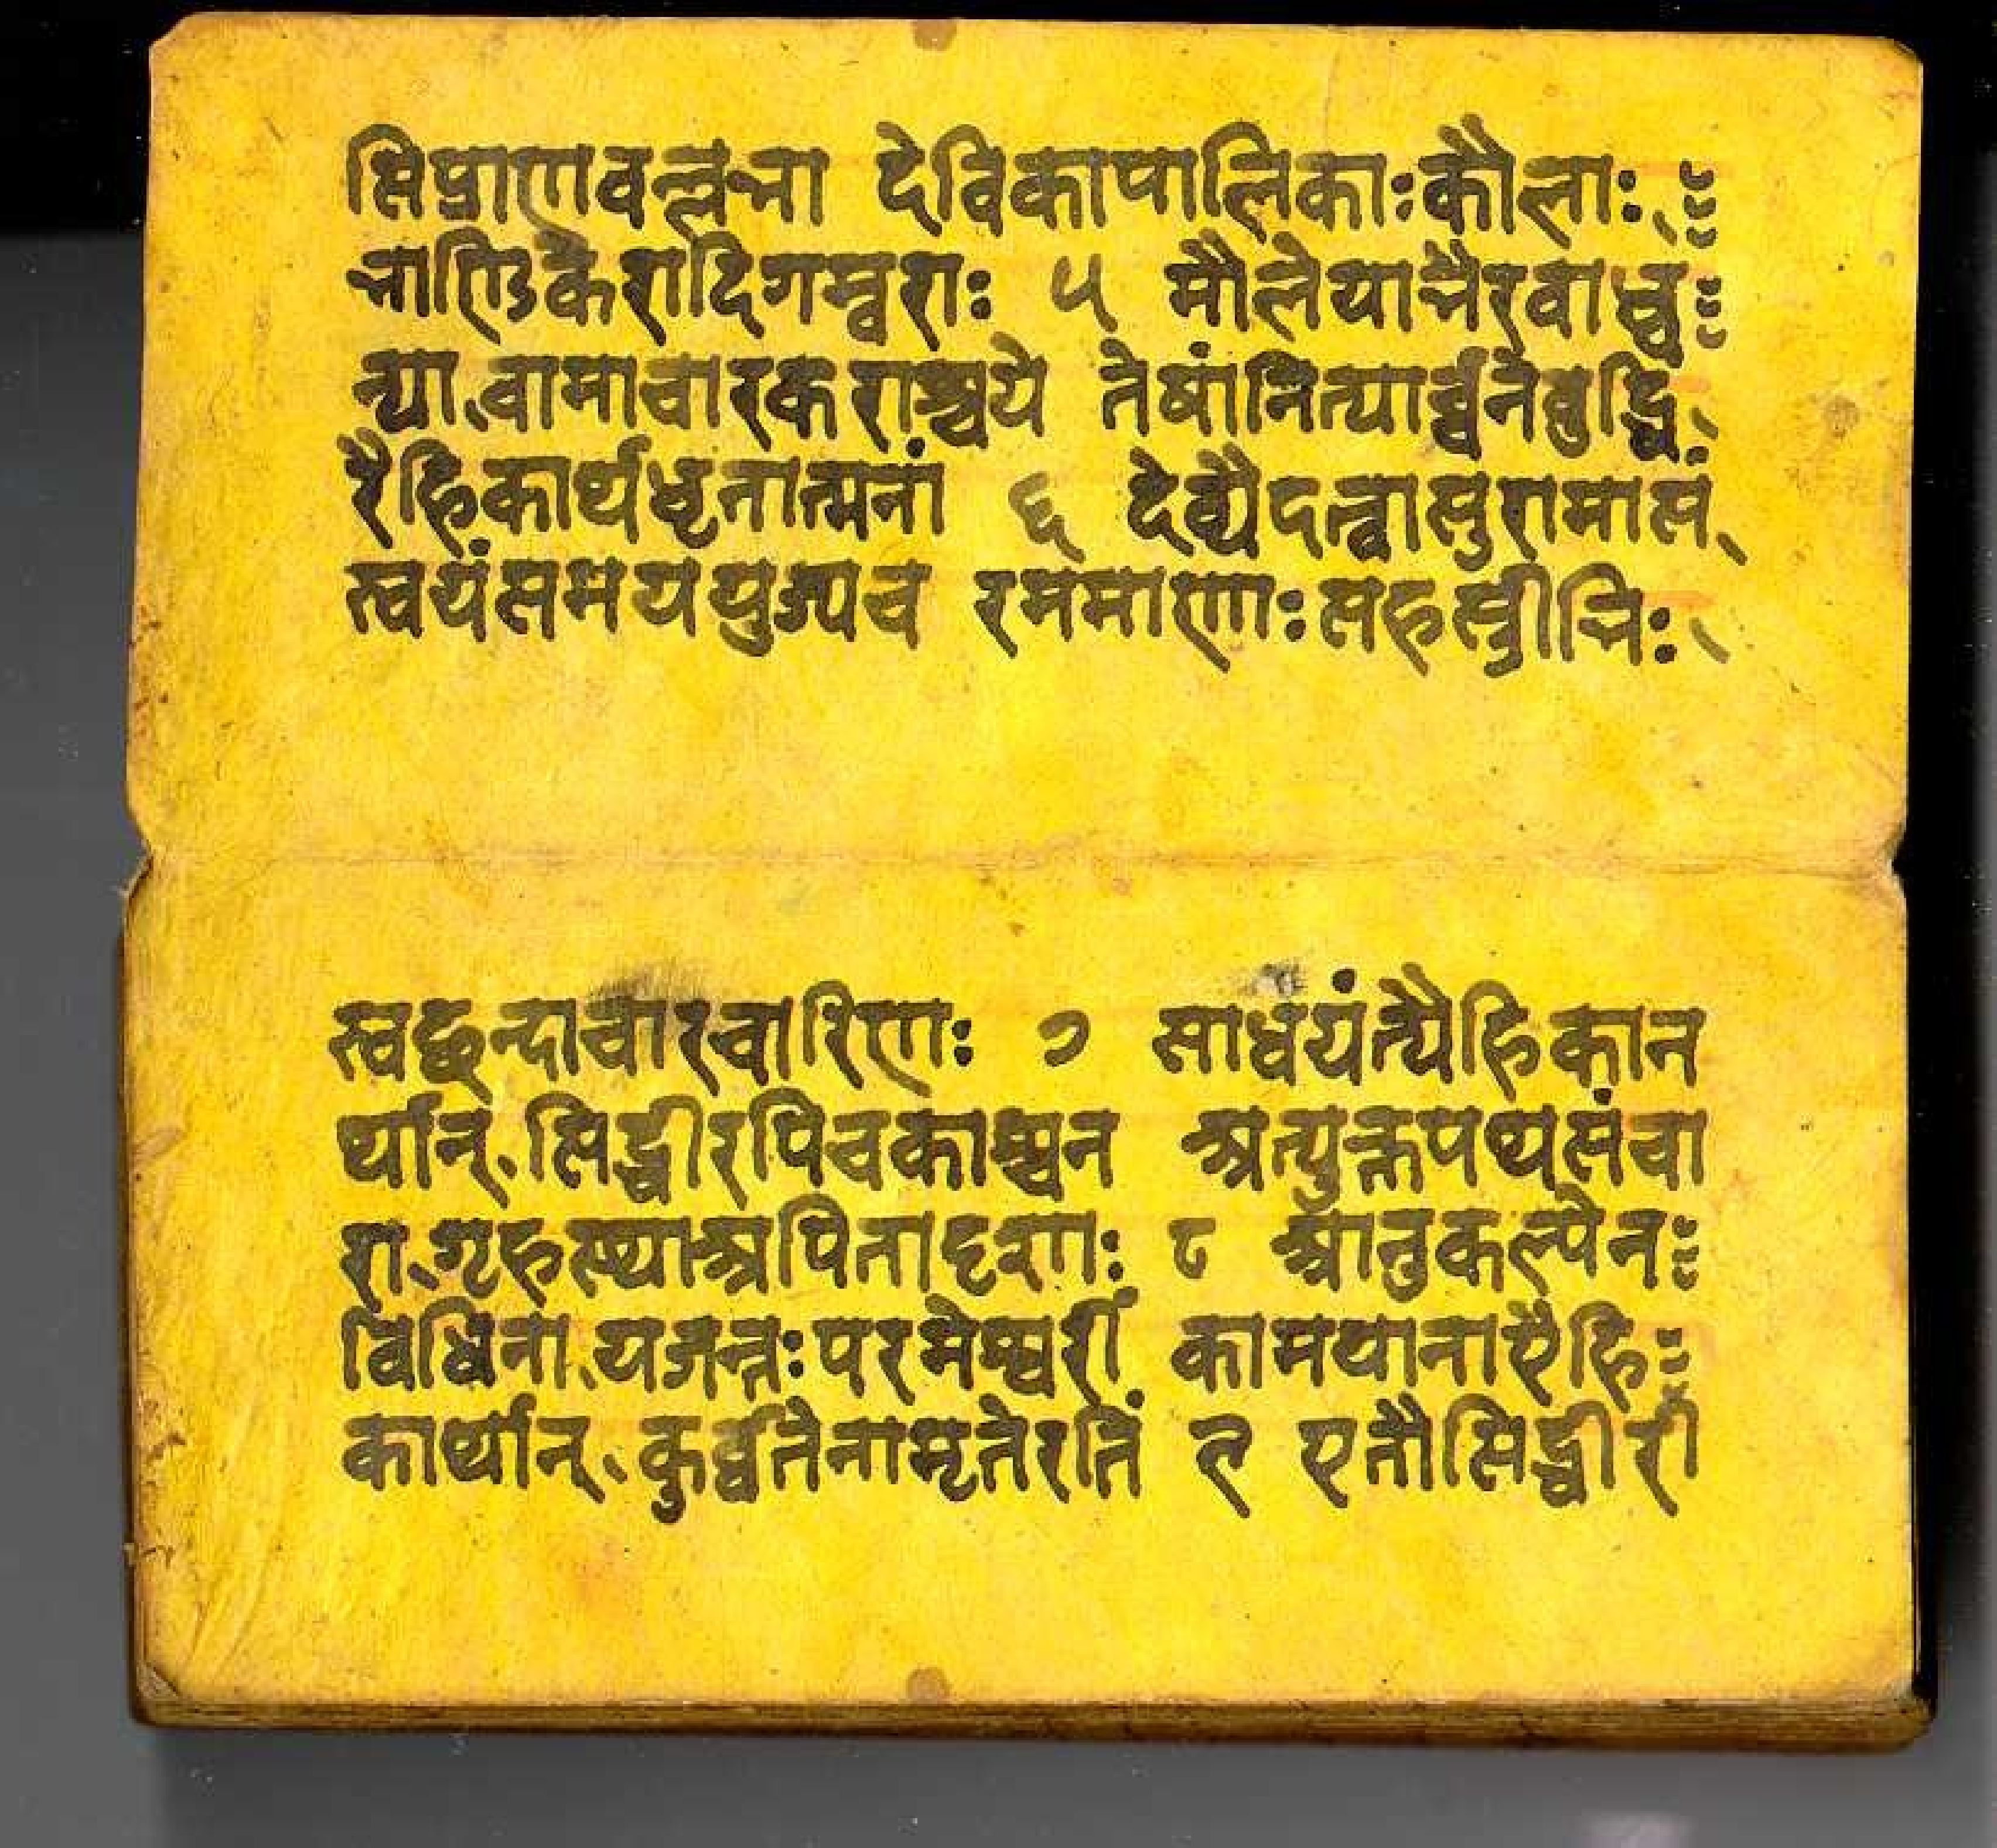 सिप्राणवल्लभा देविकापालिकाःकौलाः
भाण्डिकैरादिगम्बराः ५ मौलेयाभैरवाश्चा
न्या वामाचारकराश्चये तेषांनित्यार्च्चनेबुद्धि
रैहिकार्थधृतात्मनां ६ देव्यैदत्वासुरामासं
स्वयंसमययुज्यच रममाणाःसहस्त्रीभिः
स्वछन्दाचारचारिणः ७ साधयंत्यैहिकान
र्थान् सिद्धीरपिचकाश्चन श्रत्युक्तपथसंचा
रा गृहस्थाश्रपितादृशाः ८ श्चानुकल्पेन
विधिना यजन्तःपरमेश्वरीं कामयानाऐहि
कार्थान् कुर्व्वतेनामृतेरतिं ९ एतौसिद्धीरी